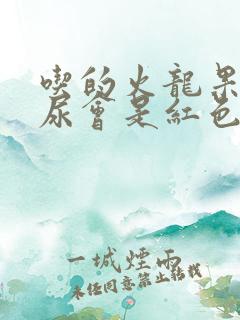 喫的火龍果
尿會是紅色
一城煙雨
未經同意禁止轉載